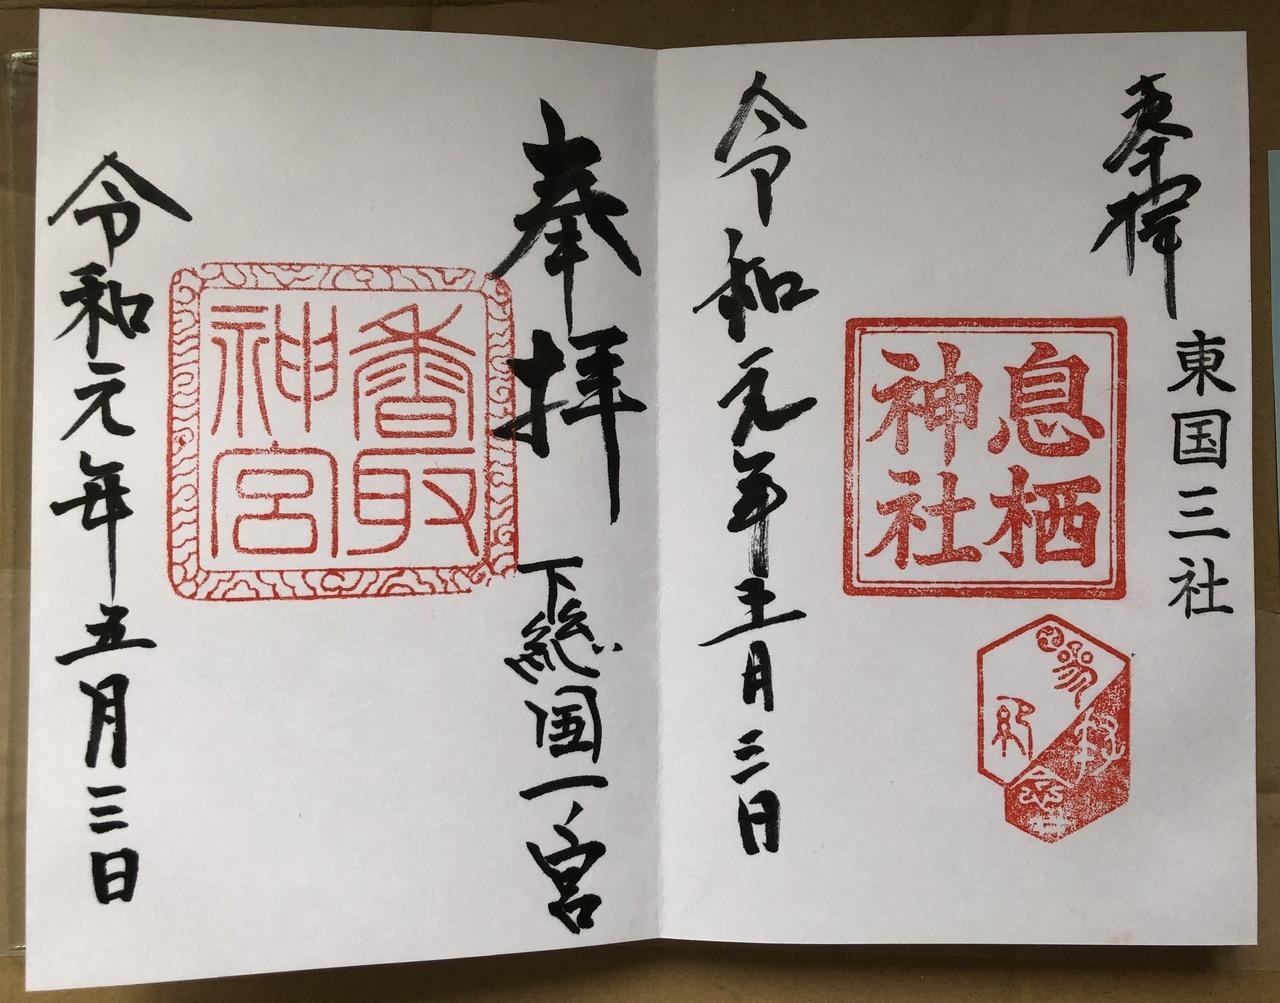 奉拝
東国三社
息栖
神社
令和元年五月三日
奉拝
下総国一ノ宮
香取
神宮
令和元年五月三日